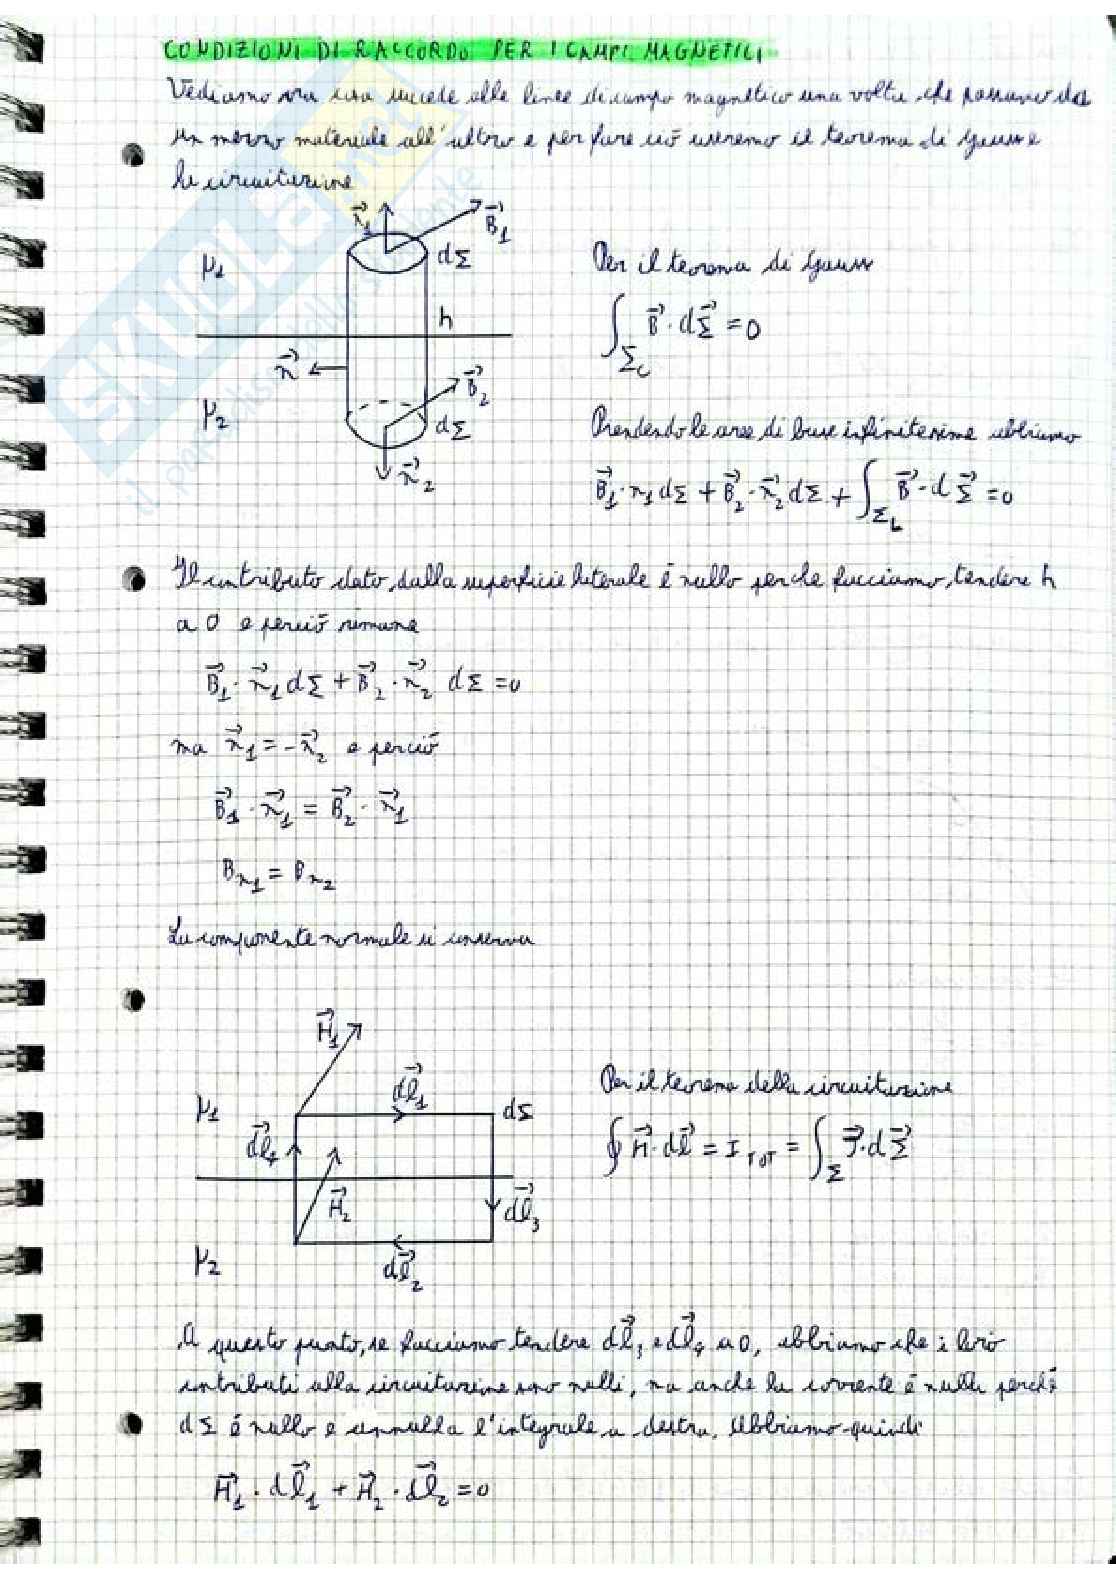 CONDIZIONI DI RACCORDO PER I CAMPI MAGNETICI
Vediamo ora cosa succede alle linee di campo magnetico una volta che passano da
un mezzo materiale all'altro e per fare ciò useremo il teorema di Gauss e
la circuitazione
n⃗₁ B⃗₁
dΣ
μ₁
Per il teorema di Gauss
h
∫_Σc B⃗ · dΣ⃗ = 0
n⃗ B⃗₂
μ₂ dΣ
Prendendo le aree di base infinitesime abbiamo
n⃗₂
B⃗₁ · n₁ dΣ + B⃗₂ · n⃗₂ dΣ + ∫_ΣL B⃗ · dΣ⃗ = 0
Il contributo dato dalla superficie laterale é nullo perche facciamo tendere h
a 0 e perciò rimane
B⃗₁ · n⃗₁ dΣ + B⃗₂ · n⃗₂ dΣ = 0
ma n⃗₁ = - n⃗₂ e perciò
B⃗₁ · n⃗₁ = B⃗₂ · n⃗₁
Bn₁ = Bn₂
La componente normale si conserva
H⃗₁
dl⃗₁
Per il teorema della circuitazione
μ₁ dΣ
dl⃗₄
∮ H⃗ · dl⃗ = I TOT = ∫_Σ J⃗ · dΣ⃗
H⃗₂ dl⃗₃
μ₂ dl⃗₂
A questo punto, se facciamo tendere dl⃗₃ e dl⃗₄ a 0, abbiamo che i loro
contributi alla circuitazione sono nulli, ma anche la corrente é nulla perché
dΣ é nullo e annulla l'integrale a destra. Abbiamo quindi
H⃗₁ · dl⃗₁ + H⃗₂ · dl⃗₂ = 0
SKUOLA.net
il paradiso dello studente